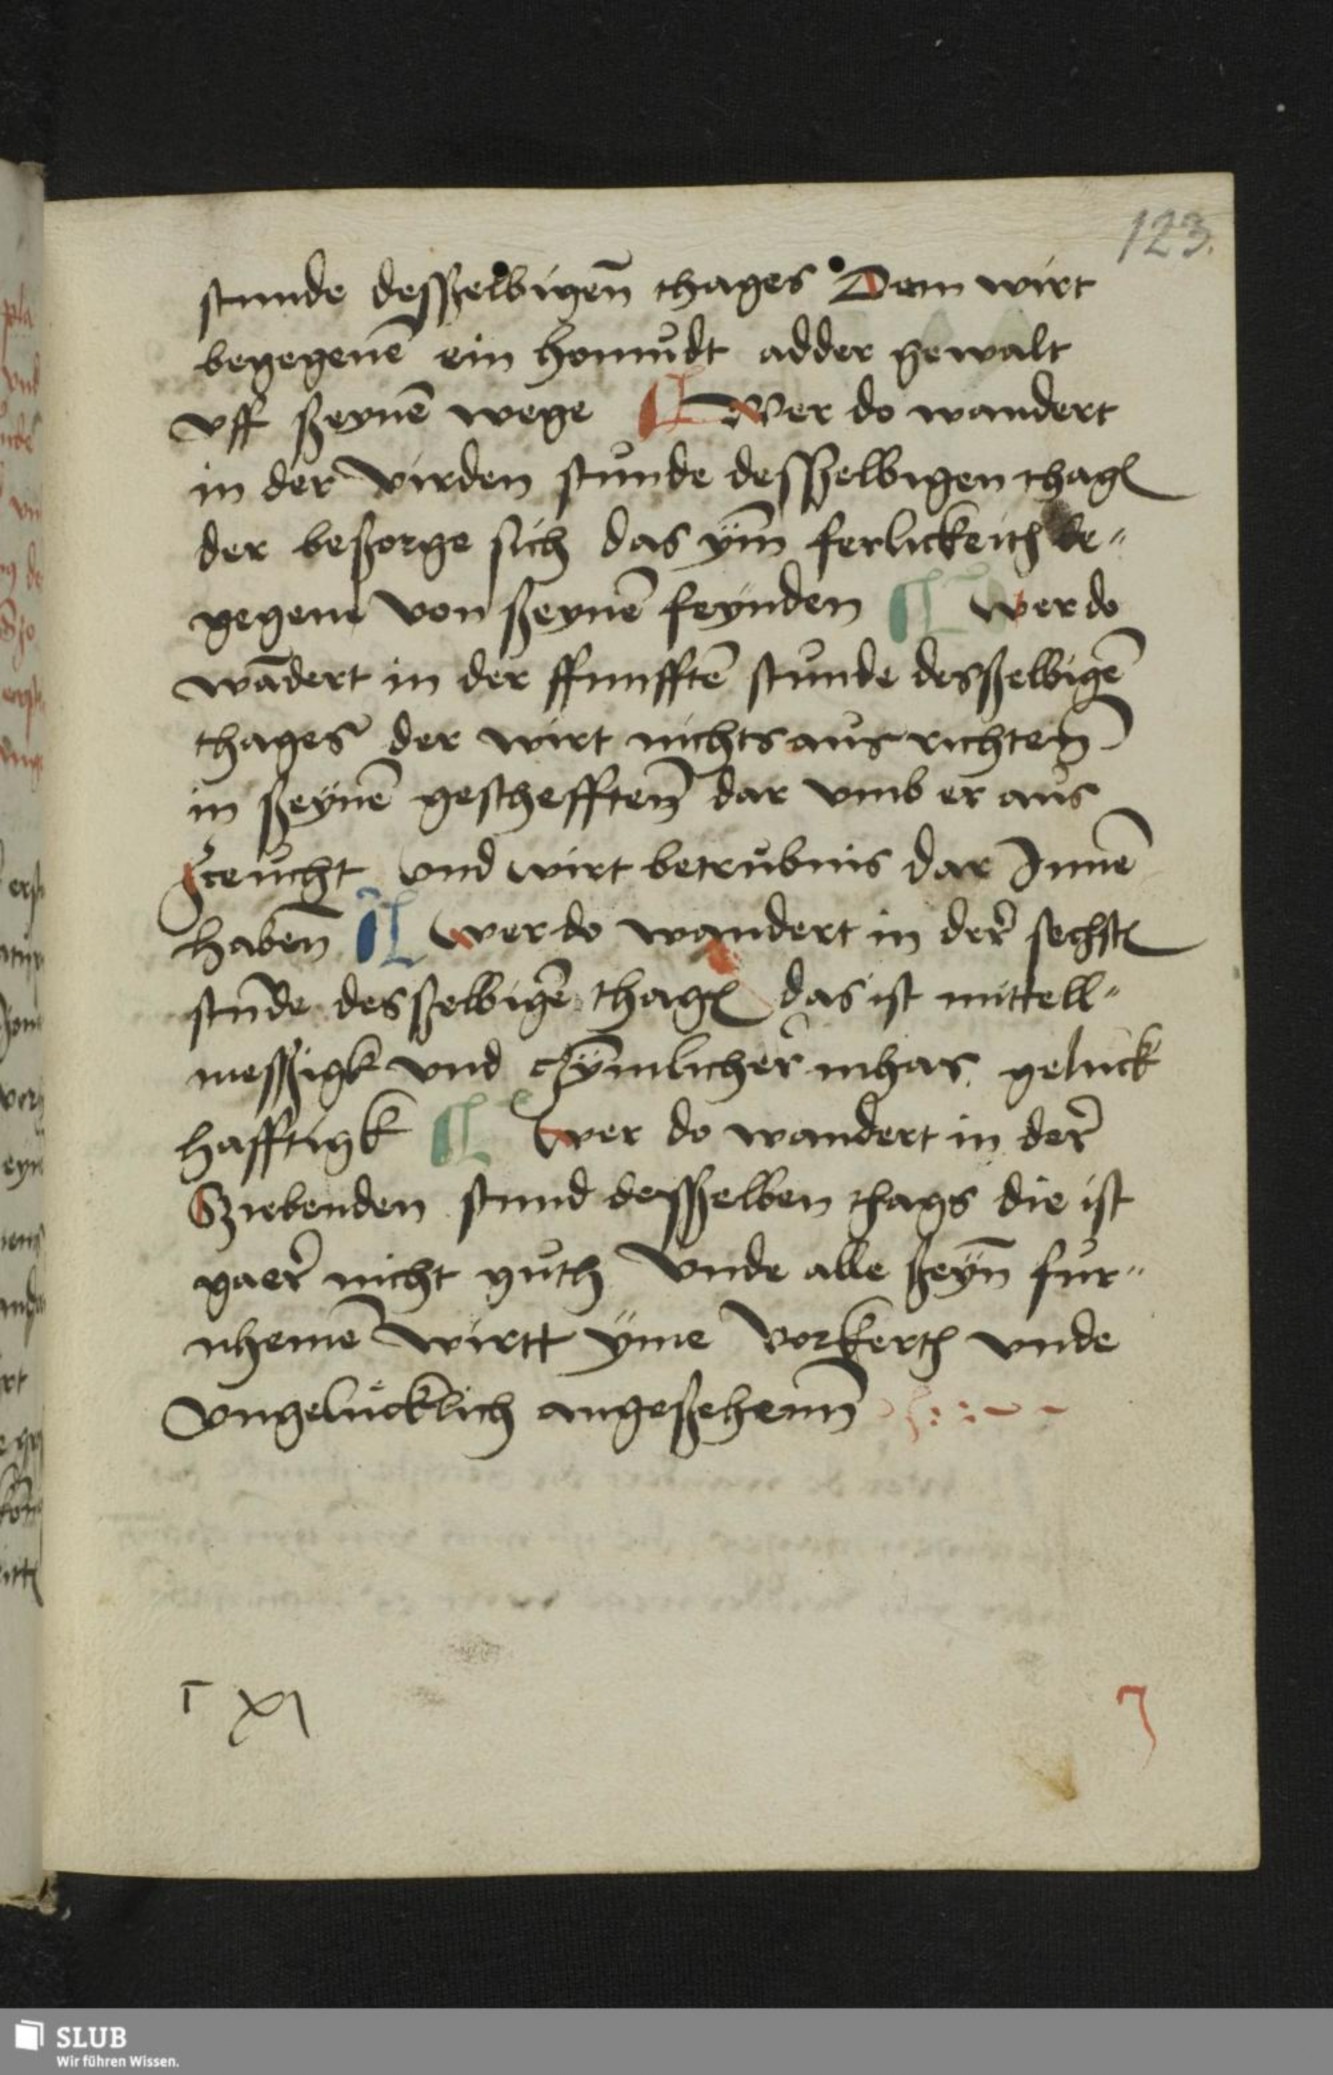 123.
stunde desßelbigenn̄ thages Dem wirt
begegenē ein homudt adder gewalt
vff ßeynē wege ¶ Wer do wandert
in der virden stunde desßelbigen thags
der beßorge sich das ym̄ ferlickeith be„
gegene von ßeynē feynden ¶ wer do
wādert in der ffunfftē stunde desßelbigē
thages der wirt nichts aus richtenn̄
in ßeynē geschefftenn̄ dar vmb er aus
zceucht vnd wirt betrubnis dar Innē
habenn̄ ¶ wer do wandert in der sechstē
stn̄de desßelbigē thags das ist mittell„
messigk vnd czymlicher mhas geluck
hafftigk ¶ wer do wandert in der
Sziebenden stund desßelben thags die ist
gaer nicht guth Vnde alle ßeyn̄ fur„
nhemē wirtt yme vorkerth vnde
vngelucklich angeßehenn̄
XI
SLUB
Wir führen Wissen.